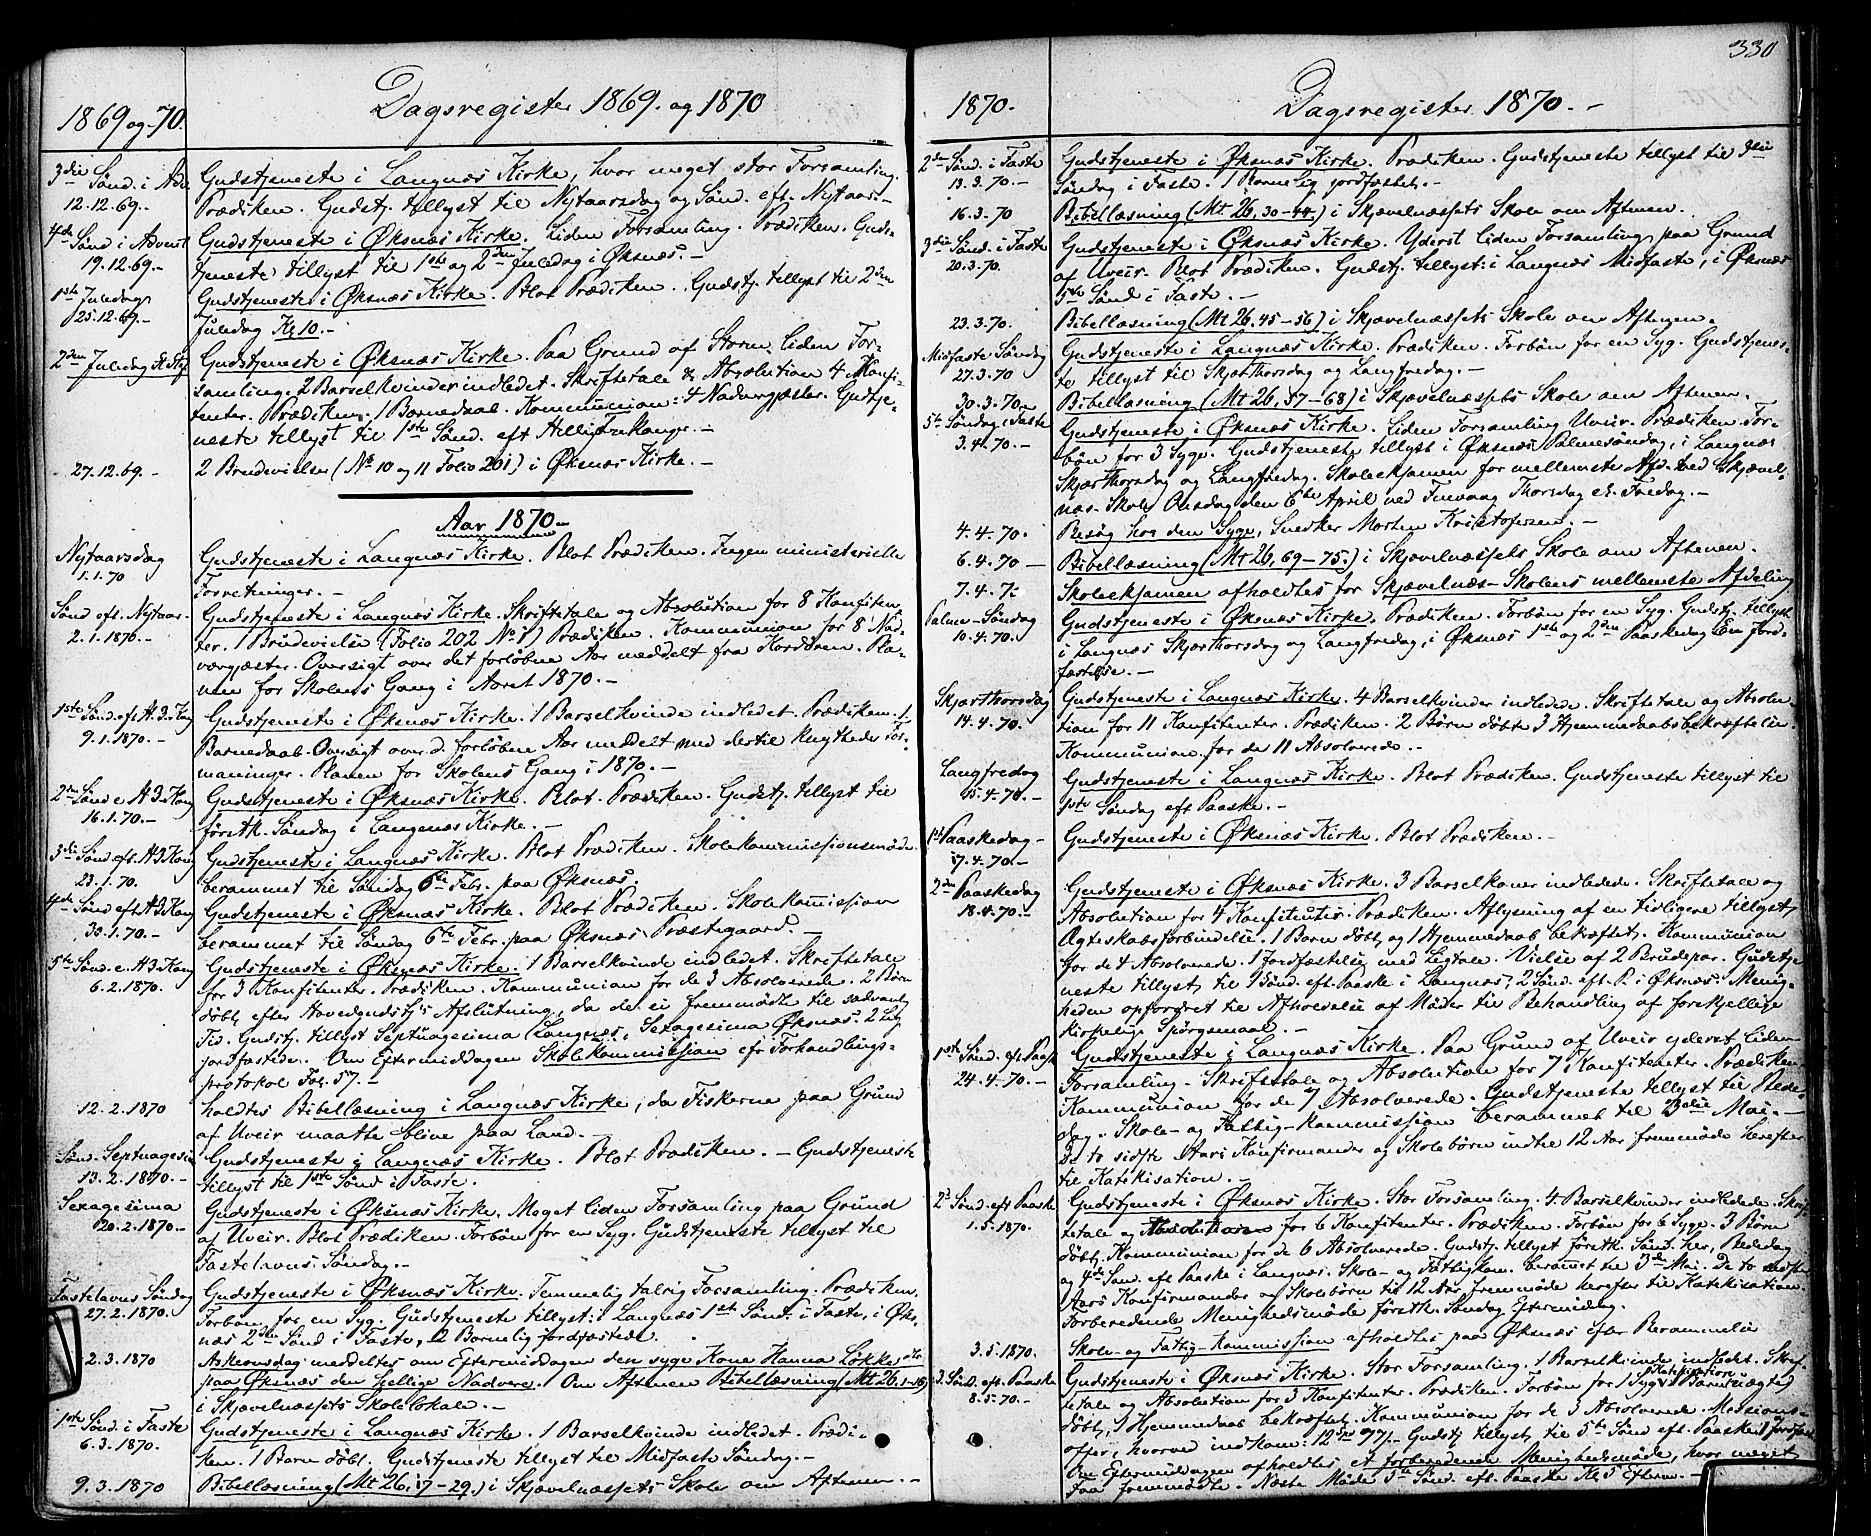 330
1869 og 70. Dagsregister 1869. og 1870
3die Sönd. i Adv. Gudstjeneste i Langnæs Kirke, hvor meget stor Forsamling.
12.12.69.- Prædiken. Gudstj. tillyst til Nytaarsdag og Sönd. eft. Nytaar.-
4de Sönd i Advent Gudstjeneste i Øksnæs Kirke. Liden Forsamling. Prædiken. Guds-
19.12.69.- tjeneste tillyst til 1ste og 2den Juledag i Øksnæs.-
1ste Juledag Gudstjeneste i Øksnæs Kirke. Blot Prædiken. Gudstj. tillyst til 2den
25.12.69.- Juledag Kl 10.-
2den Juledag St. Stef Gudstjeneste i Øksnæs Kirke. Paa Grund af Storm liden For-
samling. 2 Barselkvinder indledet. Skriftetale & Absolution 4 Konfi-
tenter. Prædiken. 1 Barnedaab. Kommunion: 4 Nadvergjæster. Gudtje-
neste tillyst til 1ste Sönd. eft Helligtrekonge.-
27.12.69.- 2 Brudevielser (No 10 og 11 Folio 201) i Øksnæs Kirke.-
Aar 1870.-
Nytaarsdag Gudstjeneste i Langnæs Kirke. Blot Prædiken. Ingen ministerielle
1.1.70 Forretninger.-
Sönd eft. Nytaar- Gudstjeneste i Langnæs Kirke. Skriftetale og Absolution for 8 Konfiten-
2.1.1870.- ter. 1 Brudevielse (Folio 202 No 1) Prædiken. Kommunion for 8 Nad-
vergjæster. Oversigt over det forløbne Aar meddelt fra Kordören. Pla-
nen for Skolens Gang i Aaret 1870.-
1ste Sönd. eft H.3.Kong Gudstjeneste i Øksnæs Kirke. 1 Barselkvinde indledet. Prædiken. 1
9.1.1870.- Barnedaab. Oversigt over d. forløbne Aar meddelt med dertil knyttede For-
maninger. Planen for Skolens Gang i 1870.-
2den Sönd e. H.3.Kong Gudstjeneste i Øksnæs Kirke. Blot Prædiken. Gudstj. tillyst til
16.1.70.- förstk. Söndag i Langenæs Kirke.-
3die Sönd. eft. H.3 Kong Gudstjeneste i Langnæs Kirke. Blot Prædiken. Skolekommissionsmöde
23.1.70. berammet til Söndag 6te Febr. paa Øksnæs.
4de Sönd eft H3 Kong Gudstjeneste i Øksnæs Kirke. Blot Prædiken. Skolekommission
30.1.70.- berammet til Söndag 6te Febr. paa Øksnæs Præstegaard.-
5te Sönd. e. H.3.Kong Gudstjeneste i Øksnæs Kirke. 1 Barselkvinde indledet. Skriftetale
6.2.1870. for 3 Konfitenter. Prædiken. Kommunion for de 3 Absolverede. 2 Börn
döbt, efter Hovedgudstj's Afslutning, da de ei fremmødt til sædvanl.
Tid. Gudstj. tillyst Septuagesima Langnæs, Sexagesima Øksnæs. 2 Lig
jordfæstede. Om Eftermiddagen Skolekommission cfr Forhandlings-
protokol Fol. 57.-
12.2.1870 holdtes Bibellæsning i Langnæs Kirke, da Fiskerne paa Grund
af Uveir maatte blive paa Land.-
Sönd. Septuagesim Gudstjeneste i Langnæs Kirke. Blot Prædiken.- Gudstjeneste
13.2.1870.- tillyst til 1ste Sönd i Faste.
Sexagesima Gudstjeneste i Øksnæs Kirke. Meget liden Forsamling paa Grund
20.2.1870.- af Uveir. Blot Prædiken. Forbön for en Syg. Gudstjeneste tillyst til
Fastelavns Söndag.-
Fastelavns Söndag Gudstjeneste i Øksnæs Kirke. Temmelig talrig Forsamling. Prædiken.
27.2.1870. Forbön for en Syg. Gudstjeneste tillyst: i Langnæs 1ste Sönd. i Faste, i Øks-
næs 2den Sönd i Faste, 2 Barnelig jordfæstede.
2.3.1870 Askeonsdag meddeltes om Eftermiddagen den syge Kone Hanna Løkke
paa Øksnæs den hellige Nadvere. Om Aftenen Bibellæsning (Mt 26,1-16)
i Skjævelnæssets Skolelokale.-
1ste Sönd. i Faste Gudstjeneste i Langnæs Kirke. 1 Barselkvinde indledet. Prædi-
6.3.1870. ken. 1 Barn döbt. Gudstjeneste tillyst til Midfaste Söndag.-
9.3.1870 Bibellæsning (Mt 26,17-29.) i Skjævelnæssets Skole om Aftenen.-
1870. Dagsregister 1870.-
2den Sönd. i Faste Gudstjeneste i Øksnæs Kirke. Prædiken. Gudstjeneste tillyst til 3die
13.3.70.- Söndag i Faste. 1 Barnelig jordfæstet.-
16.3.70 Bibellæsning (Mt 26,30-44.) i Skjævelnæssets Skole om Aftenen.
3die Sönd. i Faste Gudstjeneste i Øksnæs Kirke. Yderst liden Forsamling paa Grund
20.3.70. af Uveir. Blot Prædiken. Gudstj. tillyst: i Langnæs Midfaste, i Øksnæs
5te Sönd i Faste.-
23.3.70. Bibellæsning (Mt 26,45-56) i Skjævelnæssets Skole om Aftenen.-
Midfaste Söndag Gudstjeneste i Langnæs Kirke. Prædiken. Forbön for en Syg. Gudstjenes-
27.3.70 te tillyst til Skjærthorsdag og Langfredag.-
30.3.70.- Bibellæsning (Mt 26,57-68) i Skjævelnæssets Skole om Aftenen.
5te Söndag i Faste Gudstjeneste i Øksnæs Kirke. Liden Forsamling Uveir. Prædiken. For-
3.4.70.- bön for 3 Syge. Gudstjeneste tillyst i Øksnæs Palmesöndag, i Langnæs
Skjærthorsdag og Langfredag. Skoleeksamen for mellemste Afd. ved Skjævel-
næs-Skole Onsdag den 6te April ved Finvaag Thorsdag el. Fredag.-
4.4.70. Besøg hos den Syge, Snedker Morten Kristofersen.-
6.4.70 Bibellæsning (Mt 26,69-75.) i Skjævelnæssets Skole om Aftenen.
7.4.70 Skoleeksamen afholdtes for Skjævelnæs-Skolens mellemste Afdeling
Palme-Söndag Gudstjeneste i Øksnæs Kirke. Prædiken. Forbön for en Syg. Gudstj. tillyst
10.4.70. i Langnæs Skjærthorsdag og Langfredag, i Øksnæs 1ste og 2den Paaskedag En Jord-
fæstelse.-
Skjærthorsdag Gudstjeneste i Langnæs Kirke. 4 Barselkvinder indledede. Skriftetale og Absolu-
14.4.70. tion for 11 Konfitenter. Prædiken. 2 Börn döbte 3 Hjemmedaabsbekræftelser.
Kommunion for de 11 Absolverede.-
Langfredag Gudstjeneste i Langnæs Kirke. Blot Prædiken. Gudstjeneste tillyst til
15.4.70.- 1ste Söndag eft Paaske.-
1ste Paaskedag- Gudstjeneste i Øksnæs Kirke. Blot Prædiken.-
17.4.70.-
2den Paaskedag Gudstjeneste i Øksnæs Kirke. 3 Barselkoner indledede. Skriftetale og
18.4.70.- Absolution for 4 Konfitenter. Prædiken. Aflysning af en tidligere tillyst
Ægteskabsforbindelse. 1 Barn döbt og 1 Hjemmedaab bekræftet. Kommunion
for de 4 Absolverede. 1 Jordfæstelse med Ligtale. Vielse af 2 Brudepar. Gudstje-
neste tillyst til 1 Sönd. eft. Paaske i Langnæs, 2 Sönd. eft. P. i Øksnæs. Menig-
heden opfordret til Afholdelse af Møder til Behandling af forskjellige
kirkelige Spörgsmaal.-
1ste Sönd. eft Paaske Gudstjeneste i Langnæs Kirke. Paa Grund af Uveir yderst liden
24.4.70.- Forsamling.- Skriftetale og Absolution for 7 Konfitenter. Prædiken.
Kommunion for de 7 Absolverede. Gudstjeneste tillyst til Bede-
dag. Skole- og Fattig-Kommission berammes til 3die Mai.-
De to sidste Aars Konfirmander og Skolebörn indtil 12 Aar fremmöde herefter
til Katekisation.
2d Sönd. eft Paaske Gudstjeneste i Øksnæs Kirke. Stor Forsamling. 4 Barselkvinder indledede. Skrif-
1.5.1870. tetale og Absolution for 6 Konfitenter. Prædiken. Forbön for 6 Syge. 3 Börn
döbt, Kommunion for de 6 Absolverede. Gudstj. tillyst förstk. Sönd. her, Bededag
og 4de Sönd. eft Paaske i Langnæs. Skole- og Fattigkom. berammet til 3die Mai. De to sidste
Aars Konfirmander og Skolebörn til 12 Aar fremmöde herefter til Katekisation.
Forberedende Menighedsmøde förstk. Söndag Eftermiddag.
3.5.1870. Skole- og Fattig-Kommission afholdtes paa Øksnæs efter Berammelse
3. Sönd. eft. Paaske Gudstjeneste i Øksnæs Kirke. Stor Forsamling. 1 Barselkvinde indledet. Skrif-
8.5.70.- tetale og Absolution for 3 Konfitenter. Prædiken. Forbön for 1 Syg. Katekisation
döbt, 1 Hjemmedaab bekræftet. Kommunion for de 3 Absolverede. Missions-
offer, hvorved indkom: 12 Spd Gudstj tillyst til 5te Sönd eft. Paaske.
Om Eftermiddagen afholdtes et forberedende Menighedsmøde, hvor meget
faa fremmødte. Næste Möde 5te Sönd. eft. Paaske Kl 5 Efterm.-